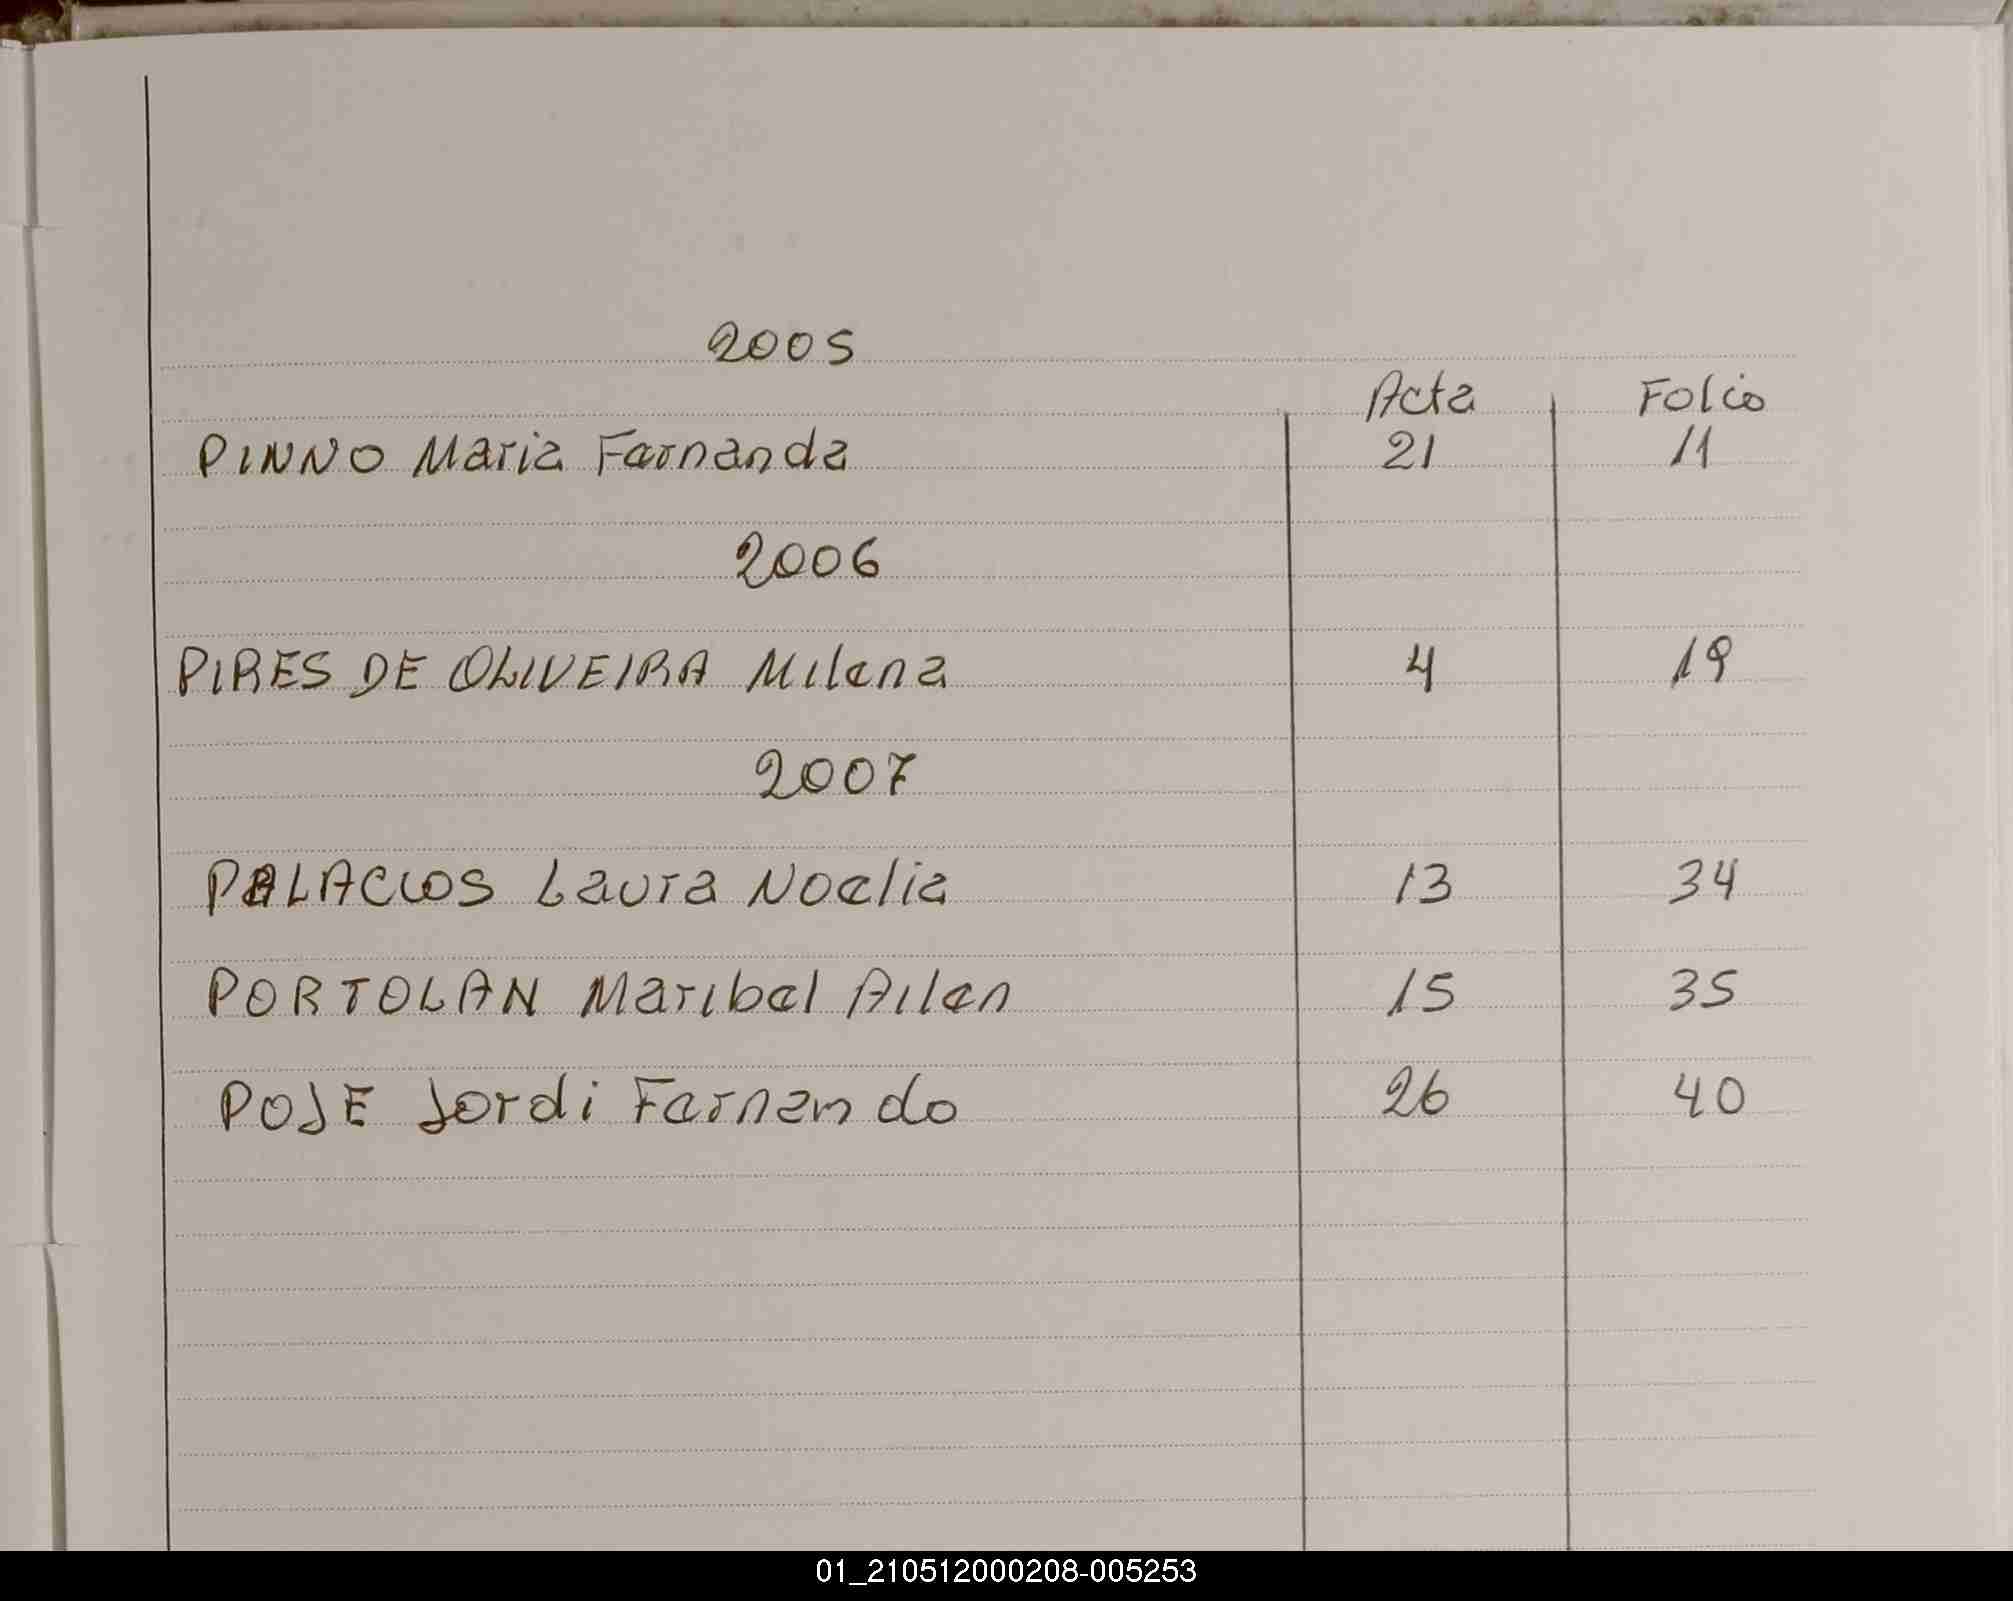 2005
Acta Folio
PINNO Maria Fernanda 21 11
2006
PIRES DE OLIVEIRA Milena 4 19
2007
PALACIOS Laura Noelia 13 34
PORTOLAN Maribel Ailen 15 35
POSE Jordi Fernando 26 40
01_210512000208-005253